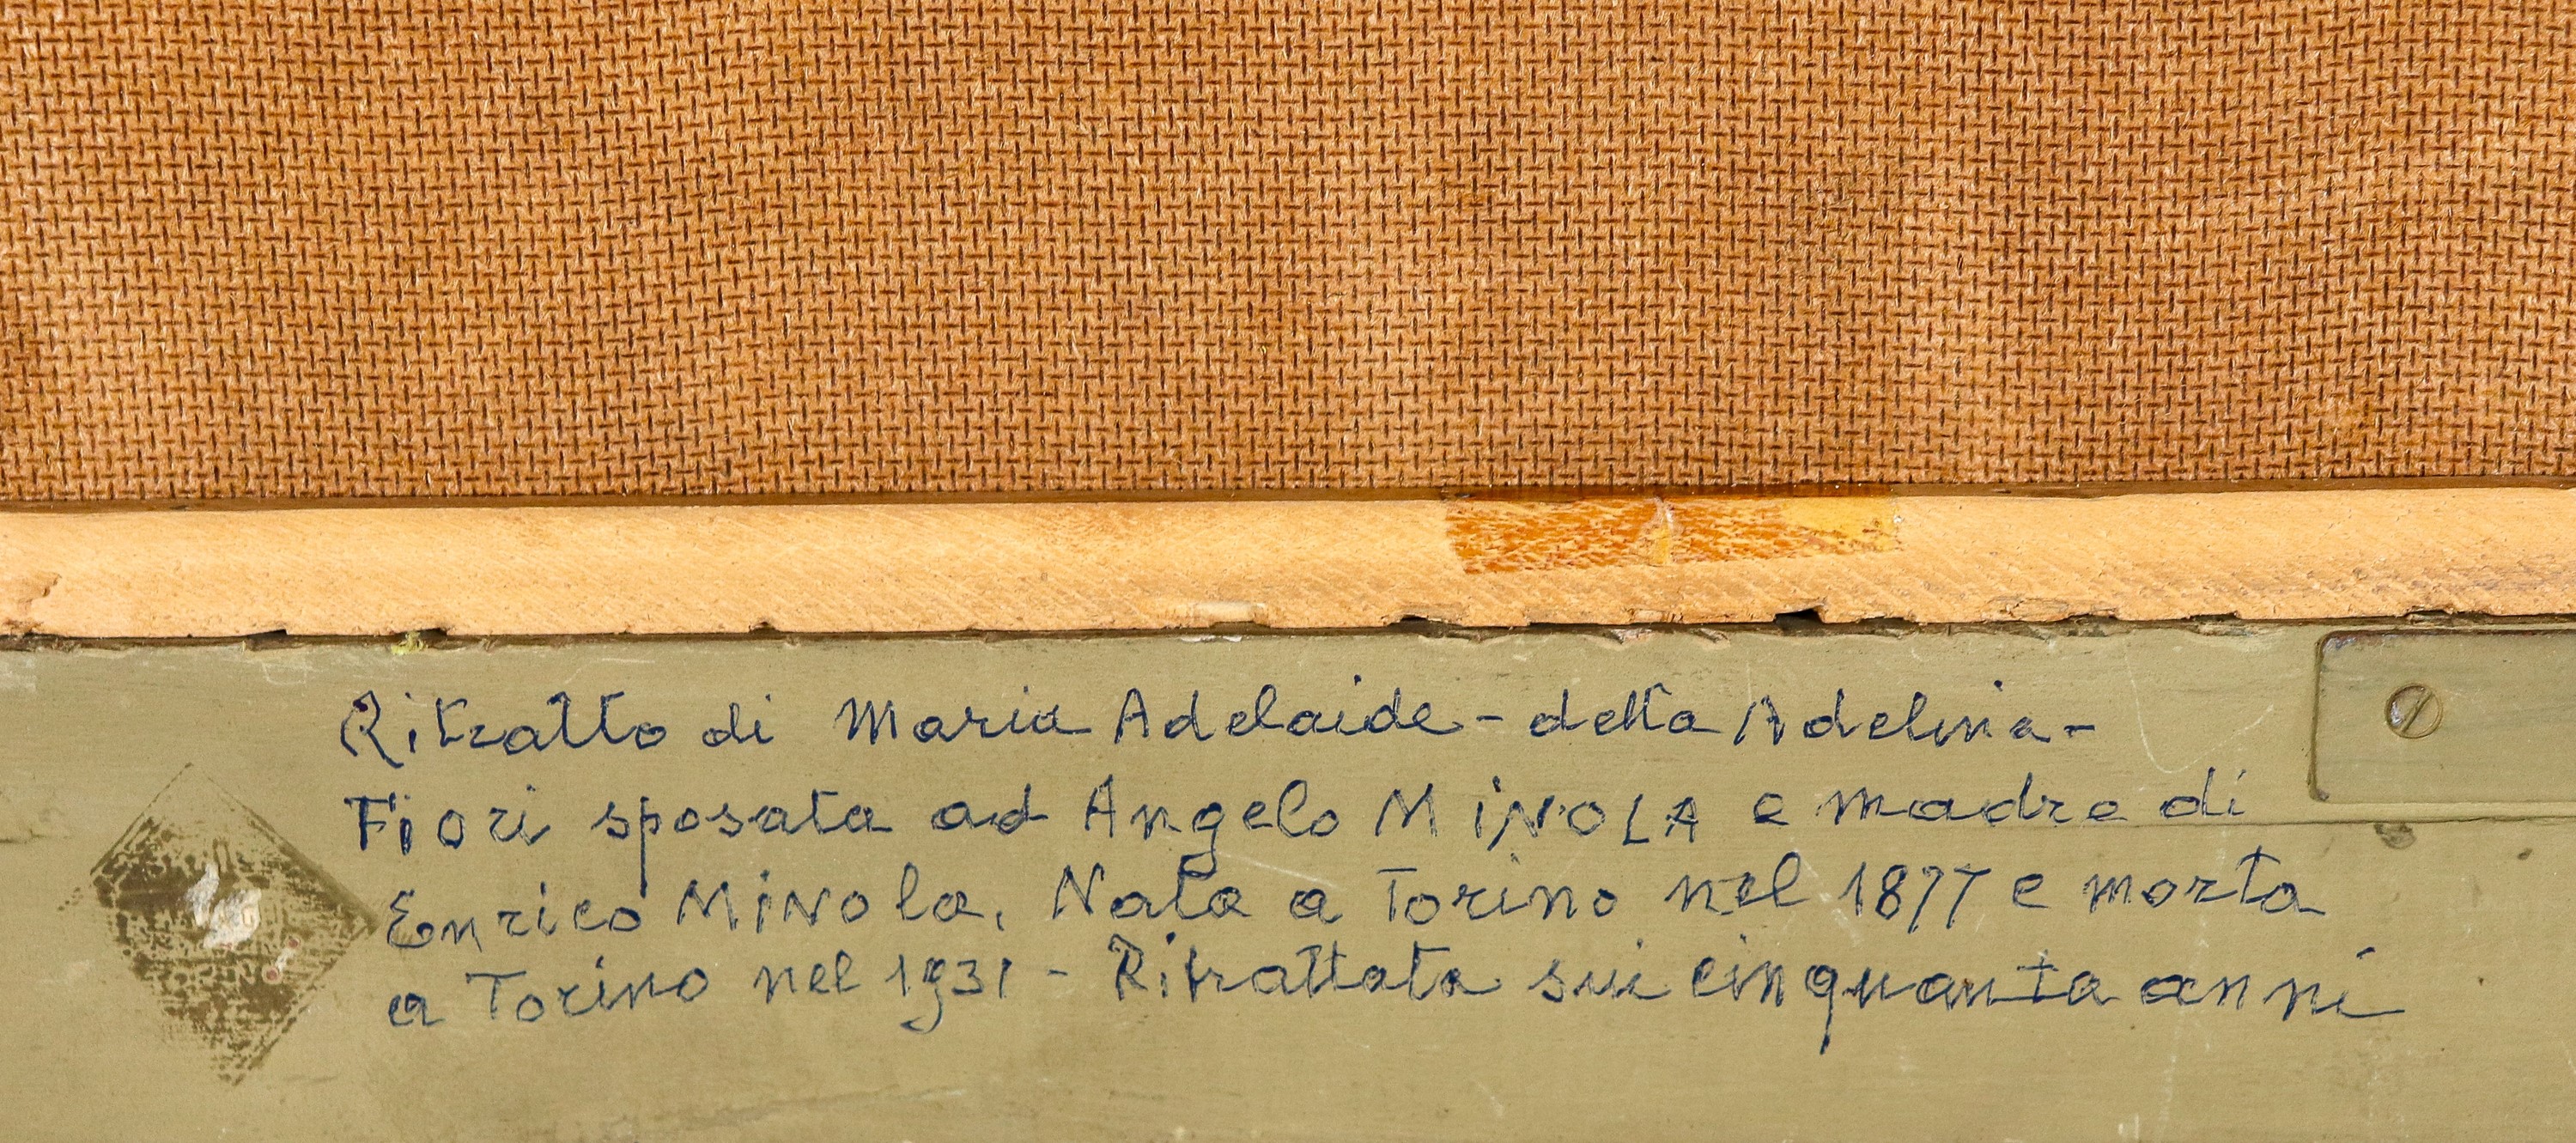 Ritratto di Maria Adelaide - detta Adelina -
Fiori sposata ad Angelo MiNOLA e madre di
Enrico MiNola. Nata a Torino nel 1877 e morta
a Torino nel 1931 - Ritrattata sui cinquanta anni